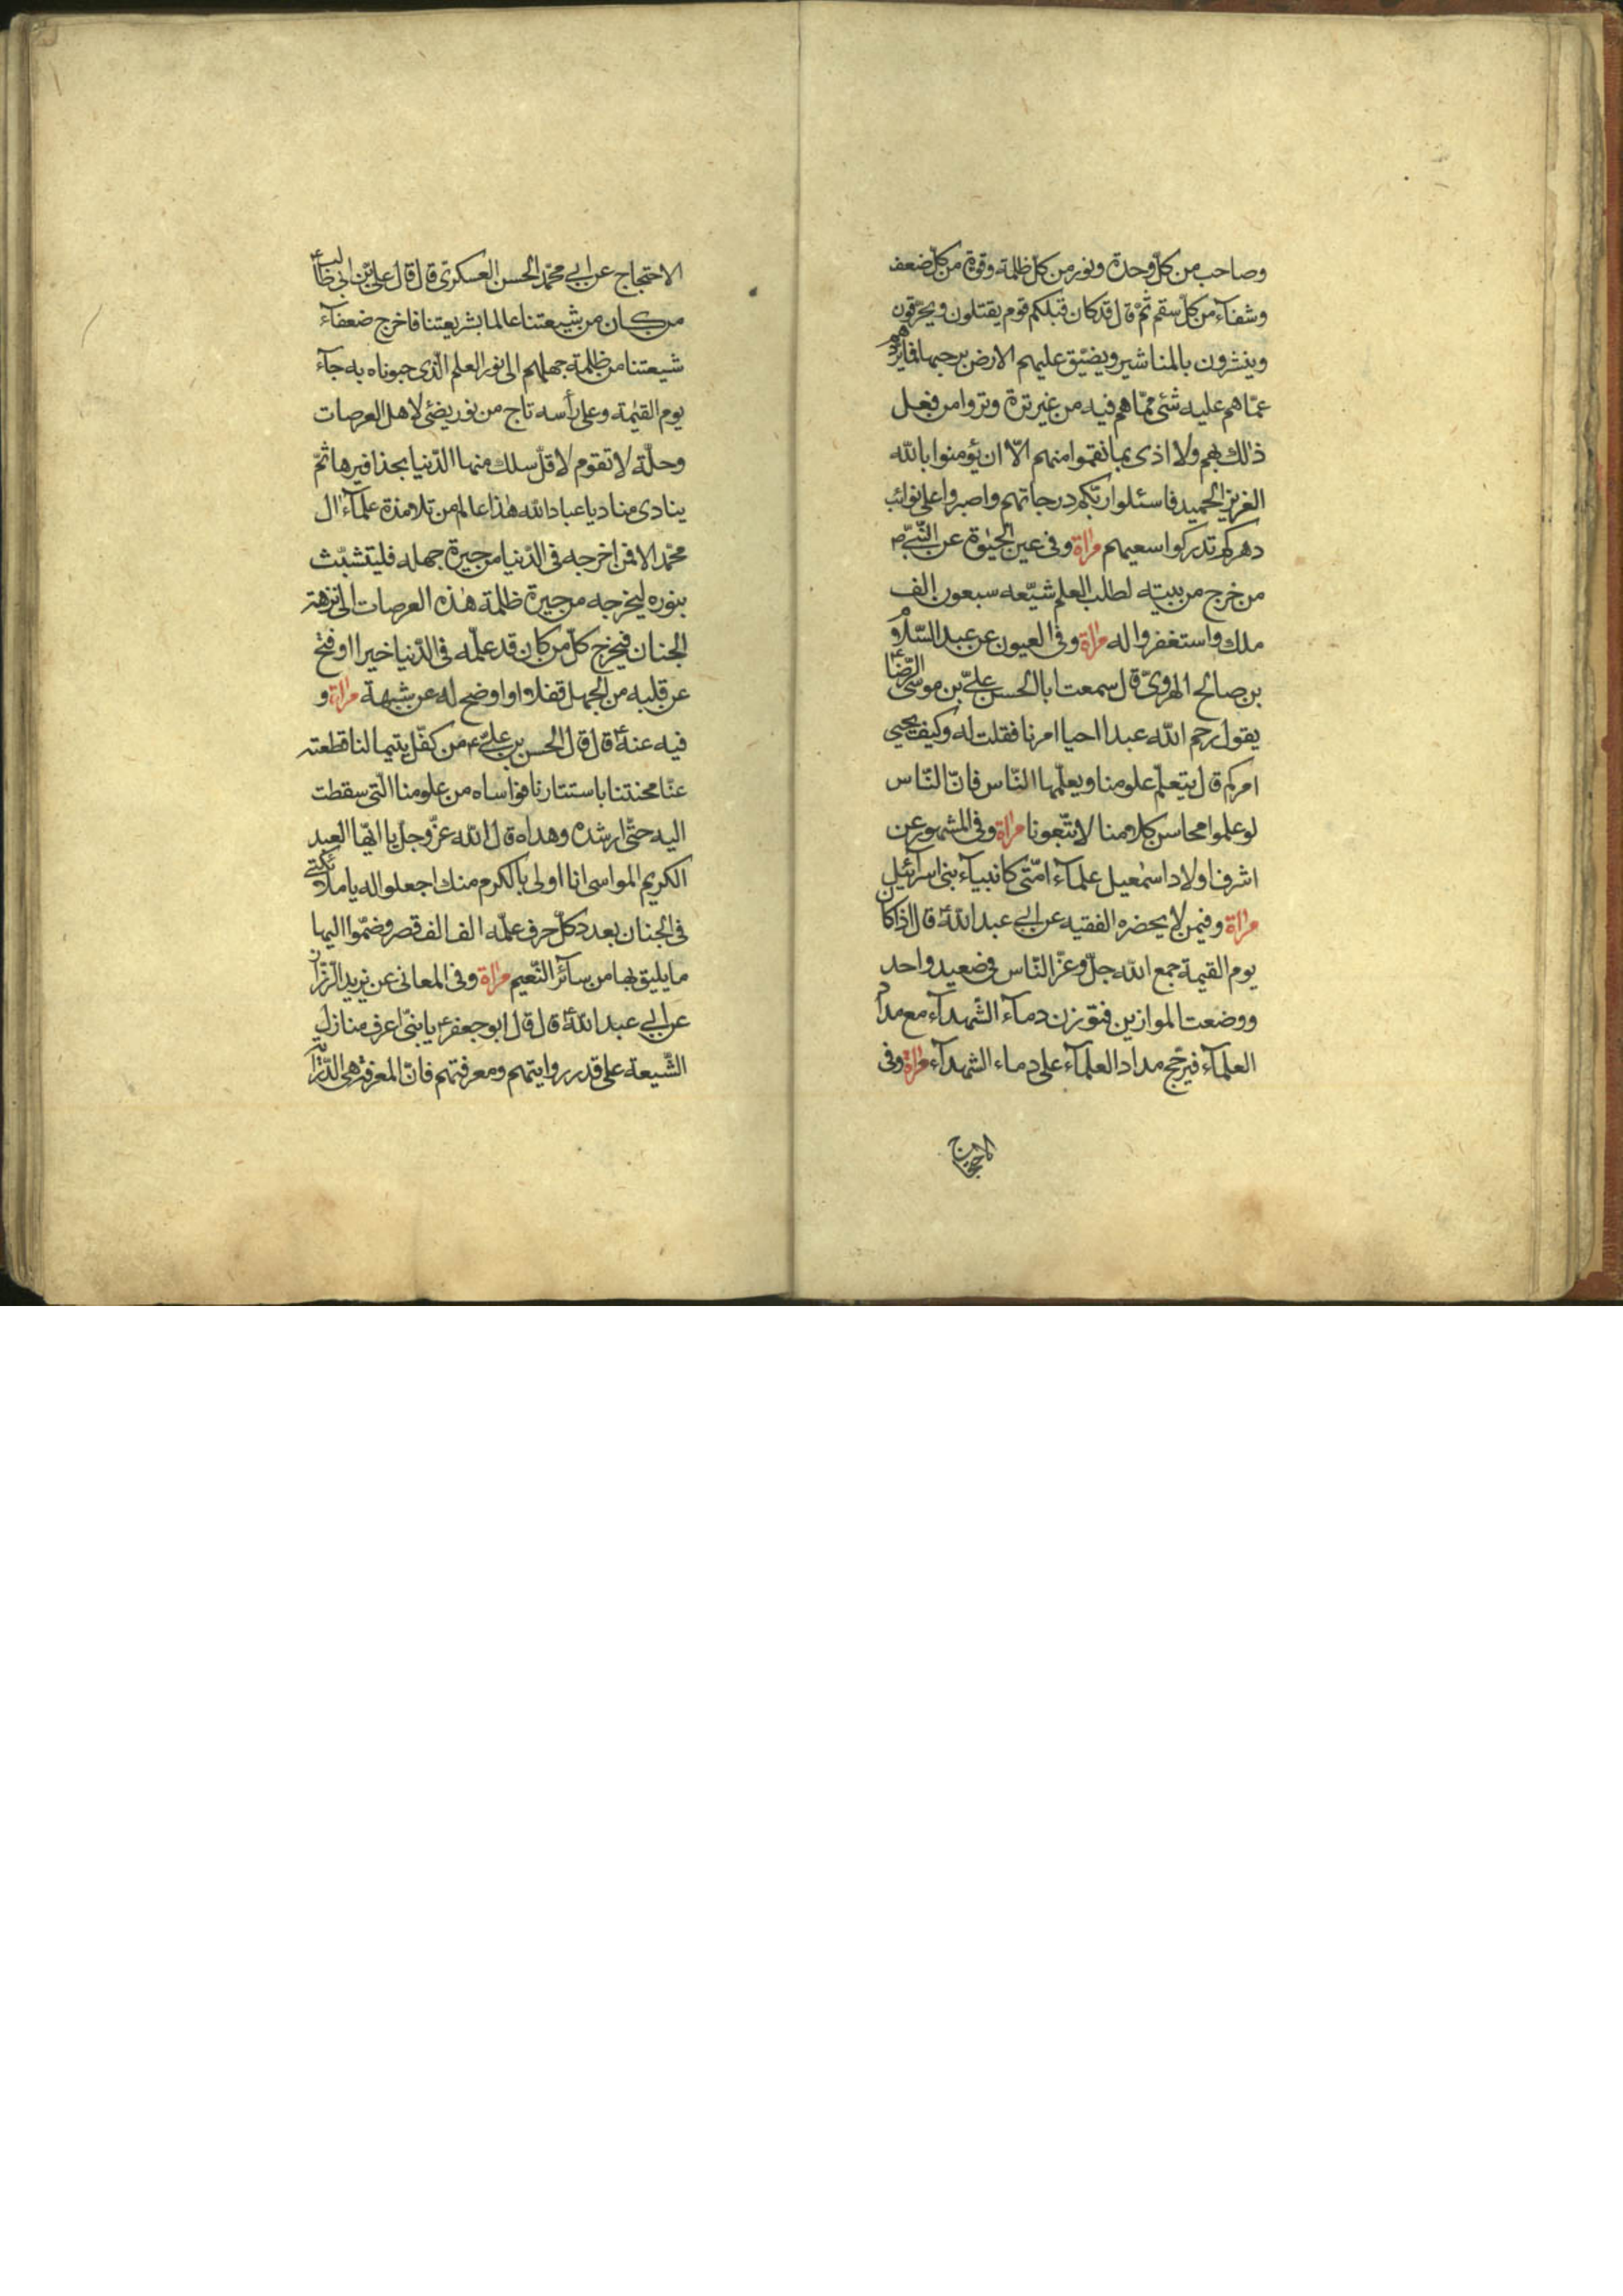 وصاحب من كلّ وحدة ونور من كلّ ظلمة وقوة من كلّ ضعف
وشفاء من كلّ سقم ثمّ قال قد كان قبلكم قوم يقتلون ويحرّقون
وينشرون بالمناشير ويضيّق عليهم الارض برحبها فما يردّهم
عمّا هم عليه شئ ممّا هم فيه من غير ترة وتروا من فعل
ذلك بهم ولا اذى بما نقموا منهم الّا ان يؤمنوا بالله
العزيز الحميد فاسئلوا ربّكم درجاتهم واصبروا على نوائب
دهركم تدركوا سعيهم مراة وفى عين الحيٰوة عن النّبىّ ص
من خرج من بيته لطلب العلم شيّعه سبعون الف
ملك واستغفروا له مراة وفى العيون عن عبد السّلام
بن صالح الهروىّ قال سمعت ابا الحسن علىّ بن موسى الرّضا ع
يقول رحم الله عبدا احيا امرنا فقلت له وكيف يحيي
امركم قال يتعلّم علومنا ويعلّمها النّاس فانّ النّاس
لو علموا محاسن كلامنا لاتّبعونا مراة وفى المشهور عن
اشرف اولاد اسمٰعيل علماء امّتى كانبياء بنى اسرائيل
مراة وفيمن لا يحضره الفقيه عن ابى عبد الله ع قال اذا كان
يوم القيمة جمع الله جلّ وعزّ النّاس فى صعيد واحد
ووضعت الموازين فتوزن دماء الشّهداء مع مداد
العلماء فيرجّح مداد العلماء على دماء الشهداء مراة وفى
الاحتجاج
الاحتجاج عن ابى محمّد الحسن العسكرىّ قال قال علىّ بن ابى طالب ع
من كان من شيعتنا عالما بشريعتنا فاخرج ضعفاء
شيعتنا من ظلمة جهلهم الى نور العلم الّذى حبوناه به جاء
يوم القيٰمة وعلى رأسه تاج من نور يضئى لاهل العرصات
وحلّة لا تقوم لاقلّ سلك منها الدّنيا بحذافيرها ثمّ
ينادى مناد يا عباد الله هٰذا عالم من تلامذة علماء ال
محمّد الا فمن اخرجه فى الدّنيا من حيرة جهله فليتشبّث
بنوره ليخرجه من حيرة ظلمة هذه العرصات الى نزهة
الجنان فيخرج كلّ من كان قد علّمه فى الدّنيا خيرا او فتح
عن قلبه من الجهل قفلا او اوضح له عن شبهة مراة و
فيه عنه ع قال قال الحسن بن علىّ ع من كفّل يتيما لنا قطعته
عنّا محنتنا باستتارنا فواساه من علومنا الّتى سقطت
اليه حتّى ارشده وهداه قال الله عزّ وجلّ يا ايّها العبد
الكريم المواسى انا اولى بالكرم منك اجعلوا له يا ملائكتى
فى الجنان بعدد كلّ حرف علّمه الف الف قصر وضمّوا اليها
ما يليق بها من سائر النّعيم مراة وفى المعانى عن يزيد الرّزّاز
عن ابى عبد الله ع قال قال ابو جعفر ع يا بنىّ اعرف منازل
الشّيعة على قدر روايتهم ومعرفتهم فانّ المعرفة هى الدّراية